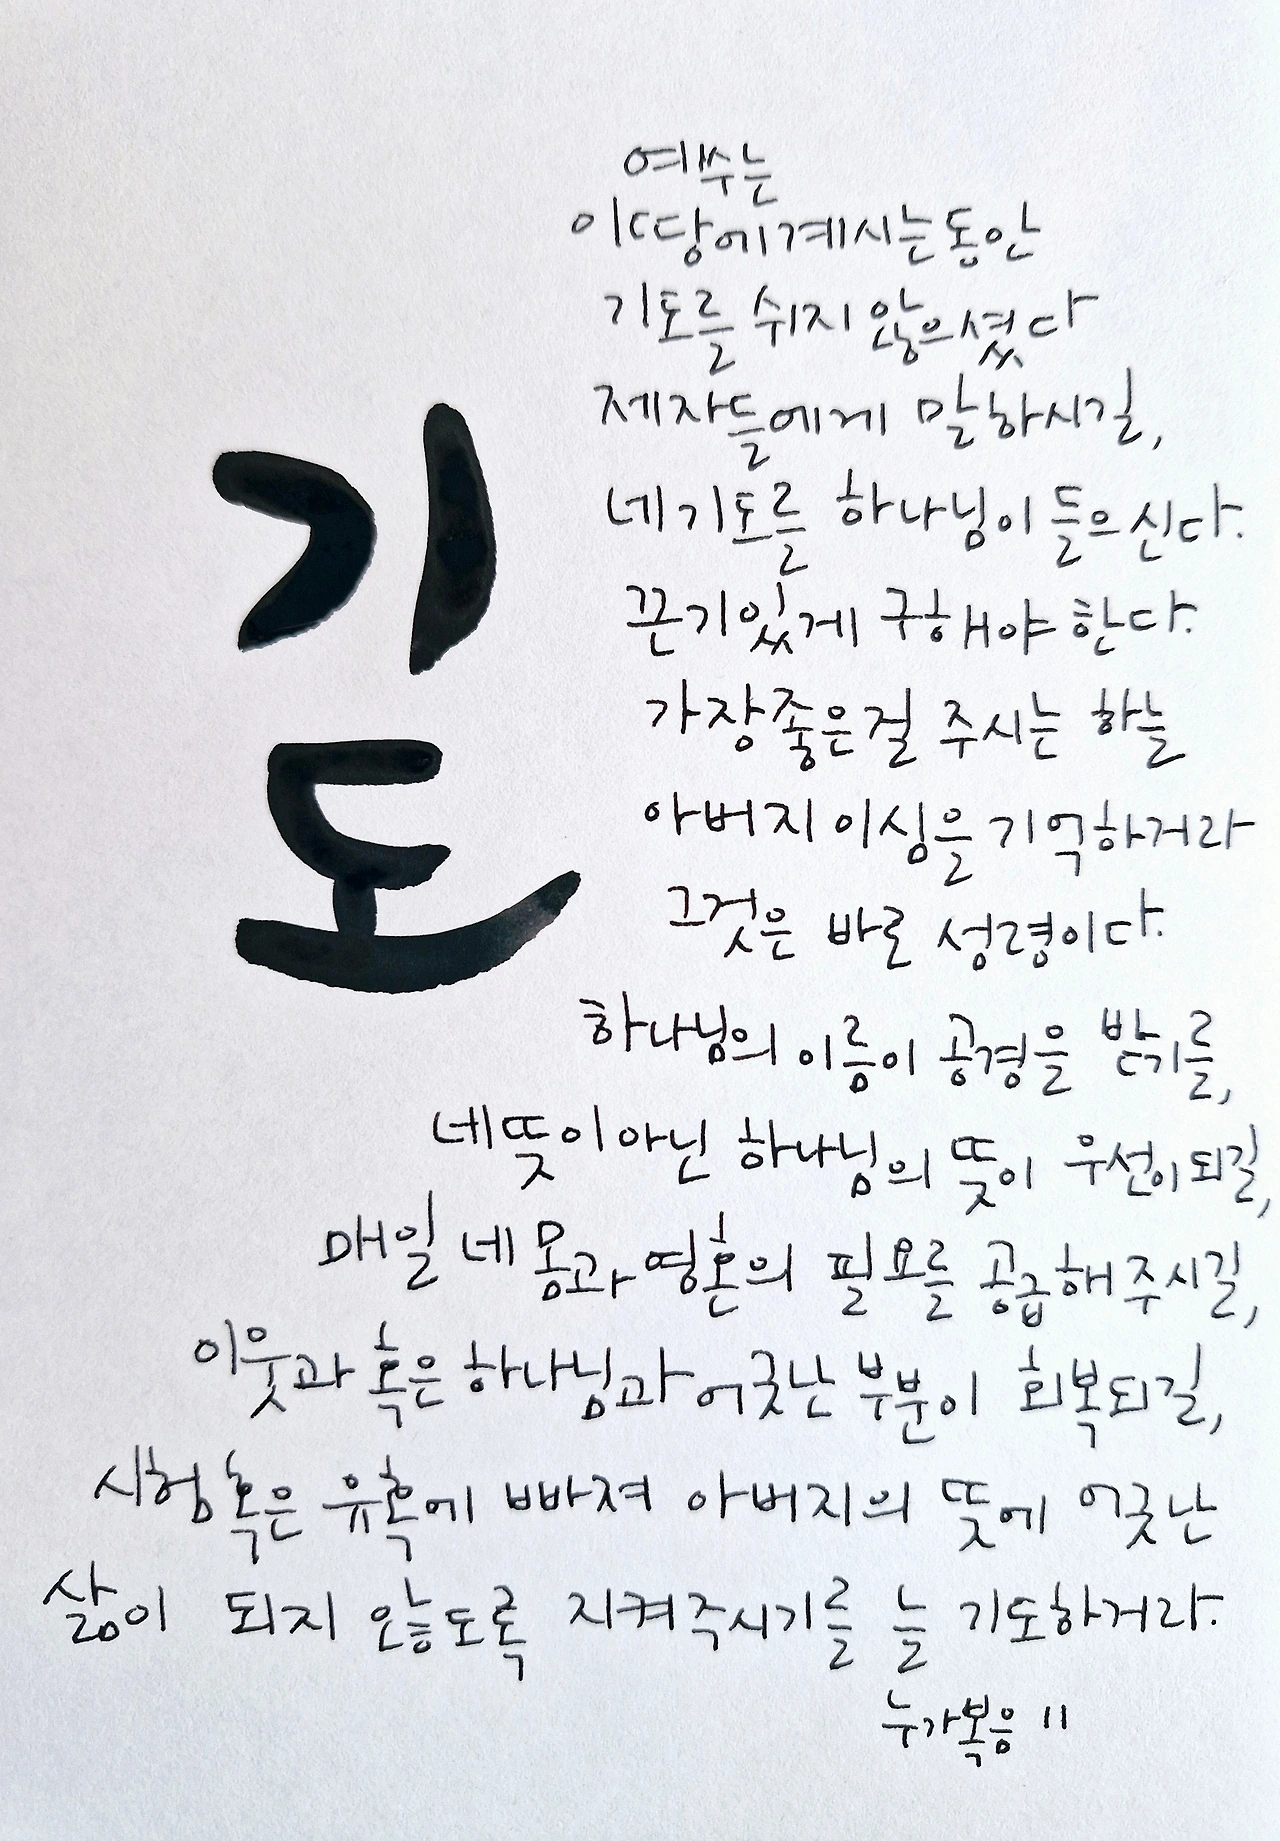 기도
예수는
이 땅에 계시는 동안
기도를 쉬지 않으셨다
제자들에게 말하시길,
네 기도를 하나님이 들으신다.
끈기있게 구해야 한다.
가장 좋은걸 주시는 하늘
아버지 이심을 기억하거라
그것은 바로 성령이다.
하나님의 이름이 공경을 받기를,
네 뜻이 아닌 하나님의 뜻이 우선이 되길,
매일 네 몸과 영혼의 필요를 공급해 주시길,
이웃과 혹은 하나님과 어긋난 부분이 회복되길,
시험 혹은 유혹에 빠져 아버지의 뜻에 어긋난
삶이 되지 않도록 지켜주시기를 늘 기도하거라.
누가복음 11